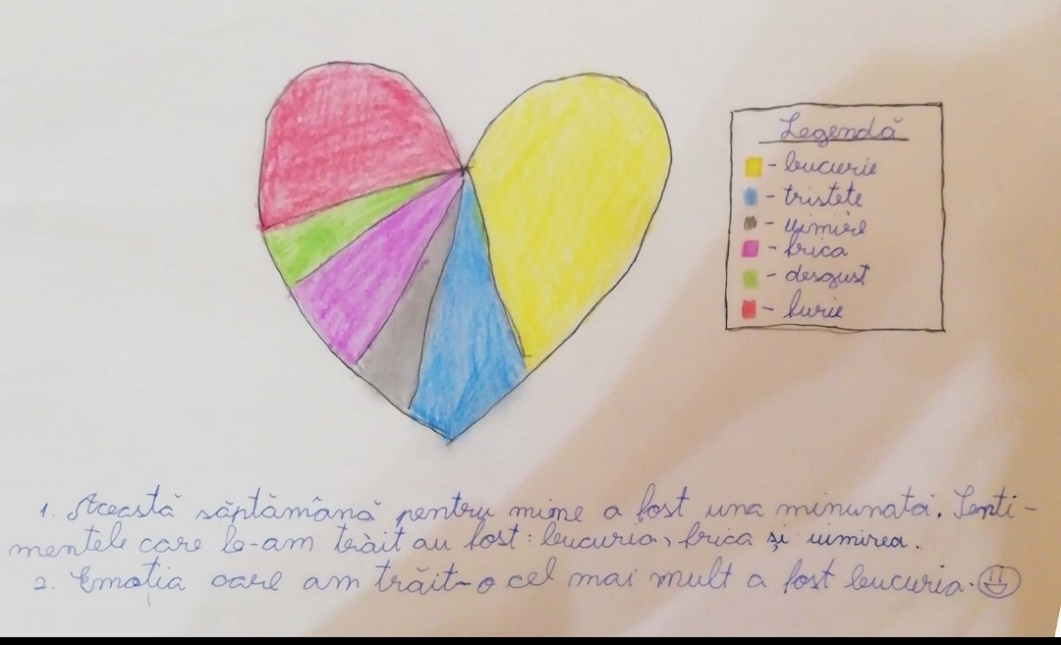 Legendă
- bucurie
- tristete
- uimire
- frica
- desgust
- furie
1. Această săptămână pentru mine a fost una minunată. Senti-
mentele care le-am trăit au fost: bucuria, frica și uimirea.
2. Emoția care am trăit-o cel mai mult a fost bucuria.